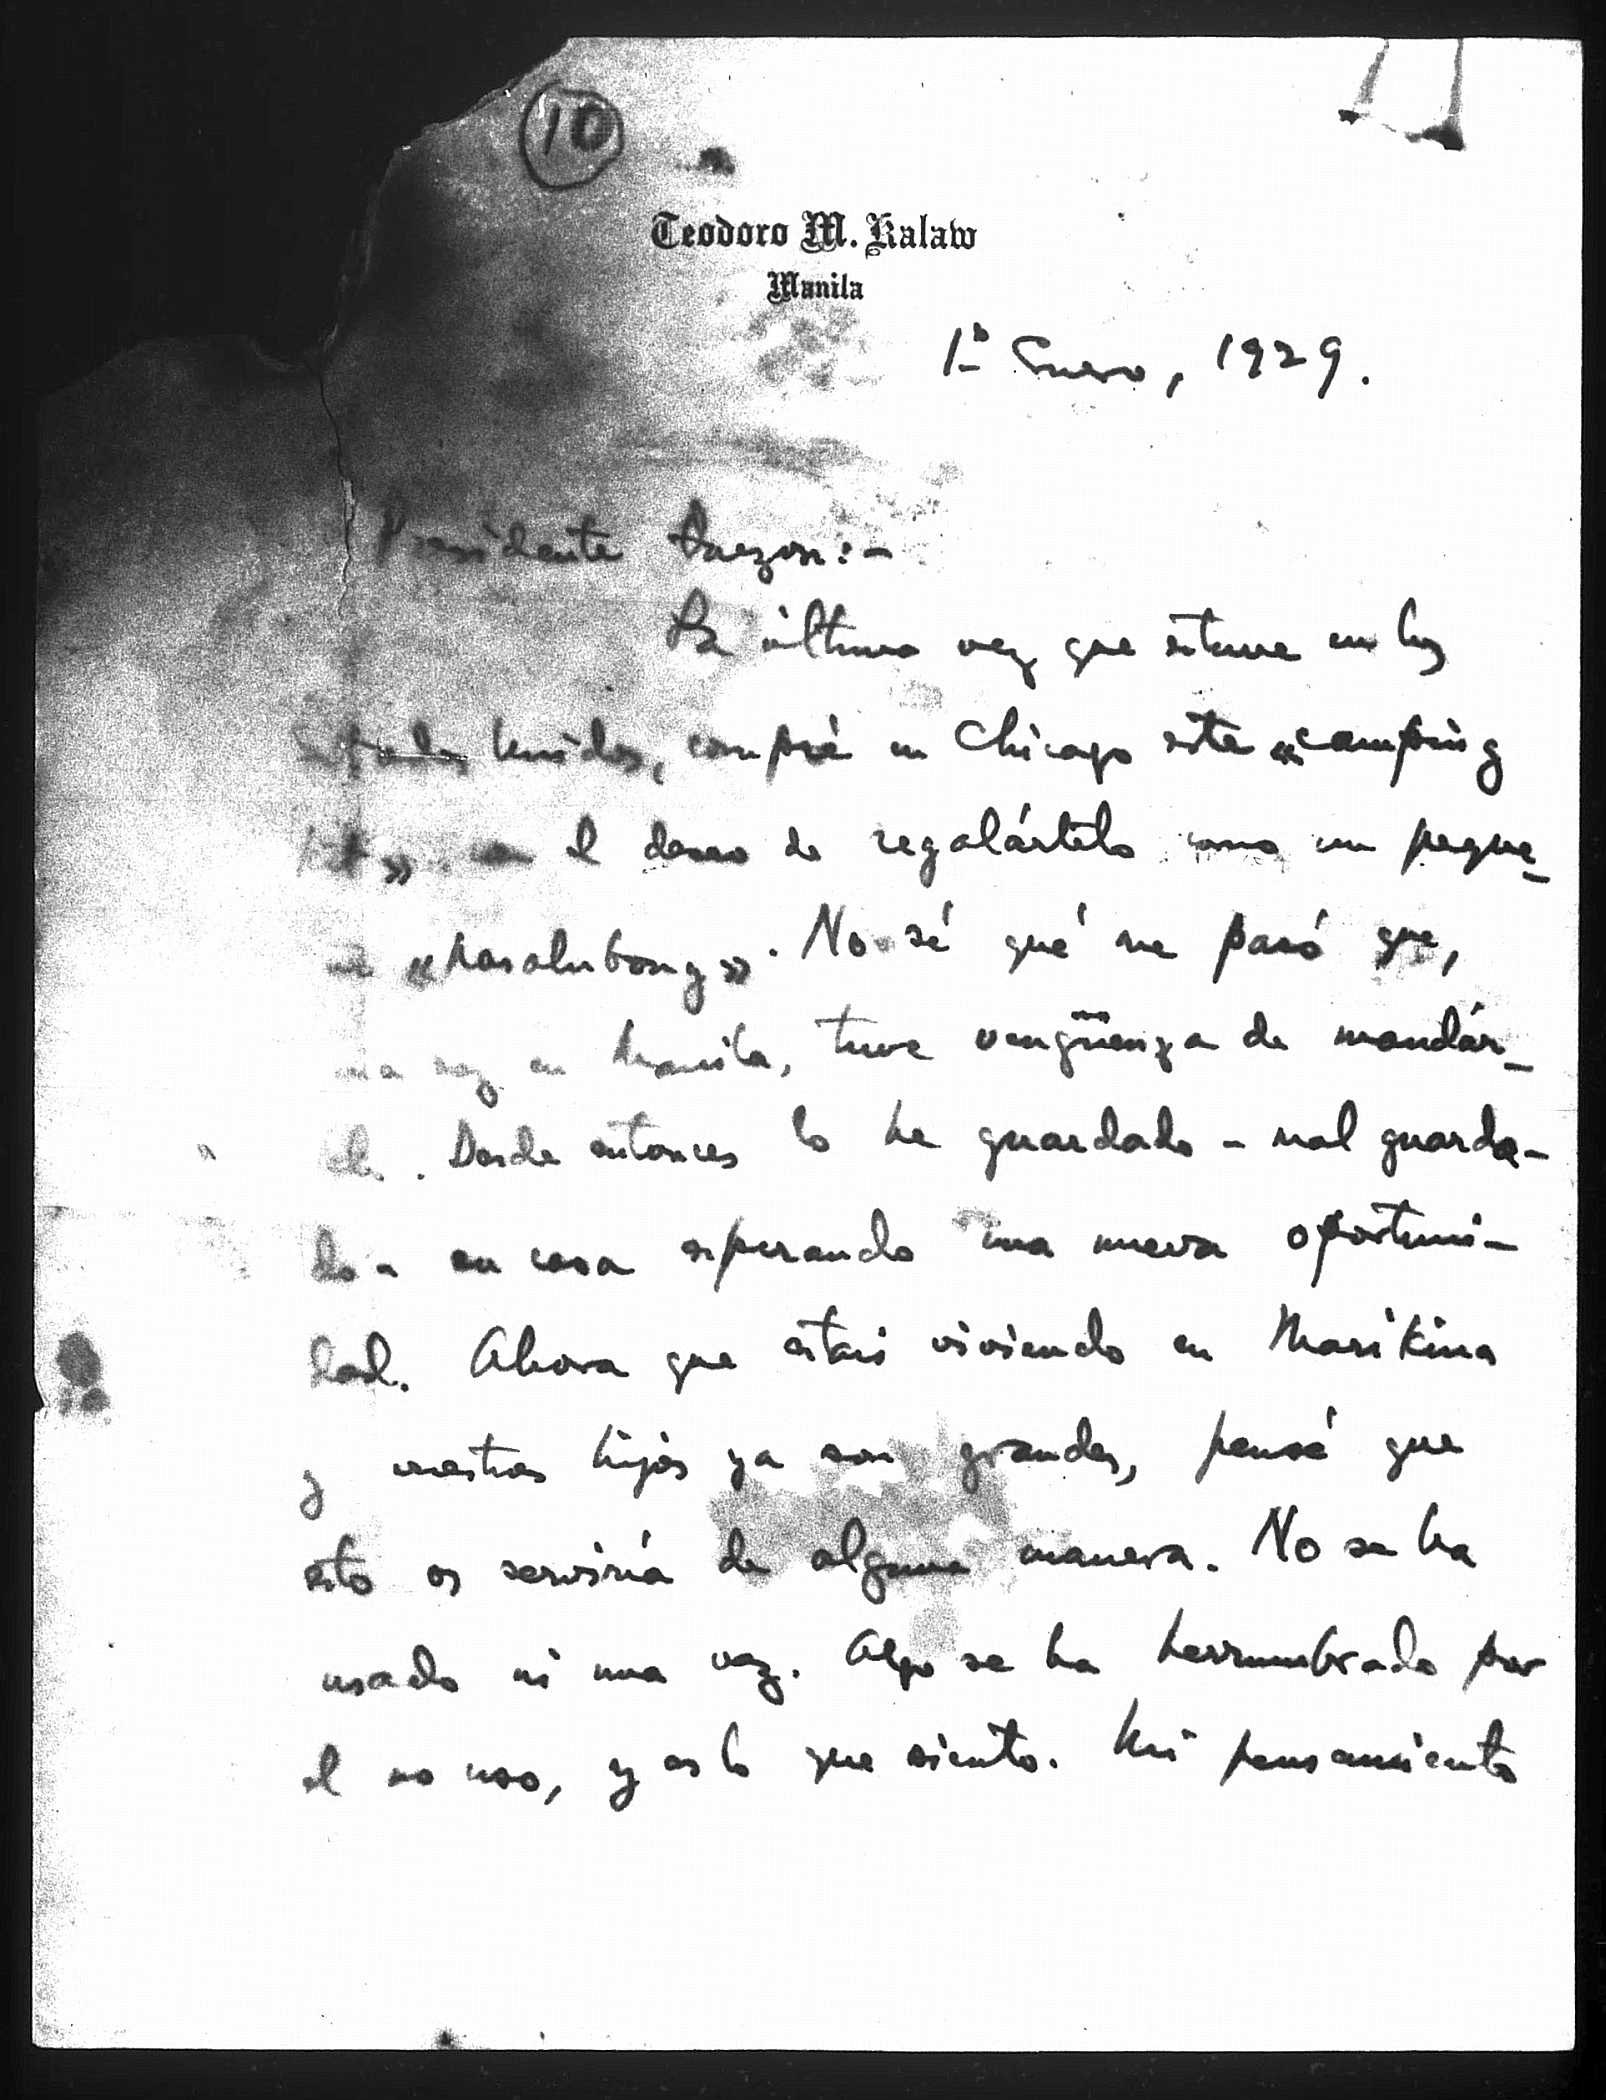 10
Teodoro M. Kalaw
Manila
1º Enero, 1929.
Presidente Quezon:-
La última vez que estuve en los
Estados Unidos, compré en Chicago este «camping
kit» con el deseo de regalártelo como un peque-
ño «pasalubong». No sé qué me pasó que,
una vez en Manila, tuve vengüenza de mandár-
telo. Desde entonces lo he guardado - mal guarda-
do - en casa esperando una nueva oportuni-
dad. Ahora que estais viviendo en Marikina
y vuestros hijos ya son grandes, pensé que
esto os serviría de alguna manera. No se ha
usado ni una vez. Algo se ha herrumbrado por
el no uso, y es lo que siento. Mi pensamiento